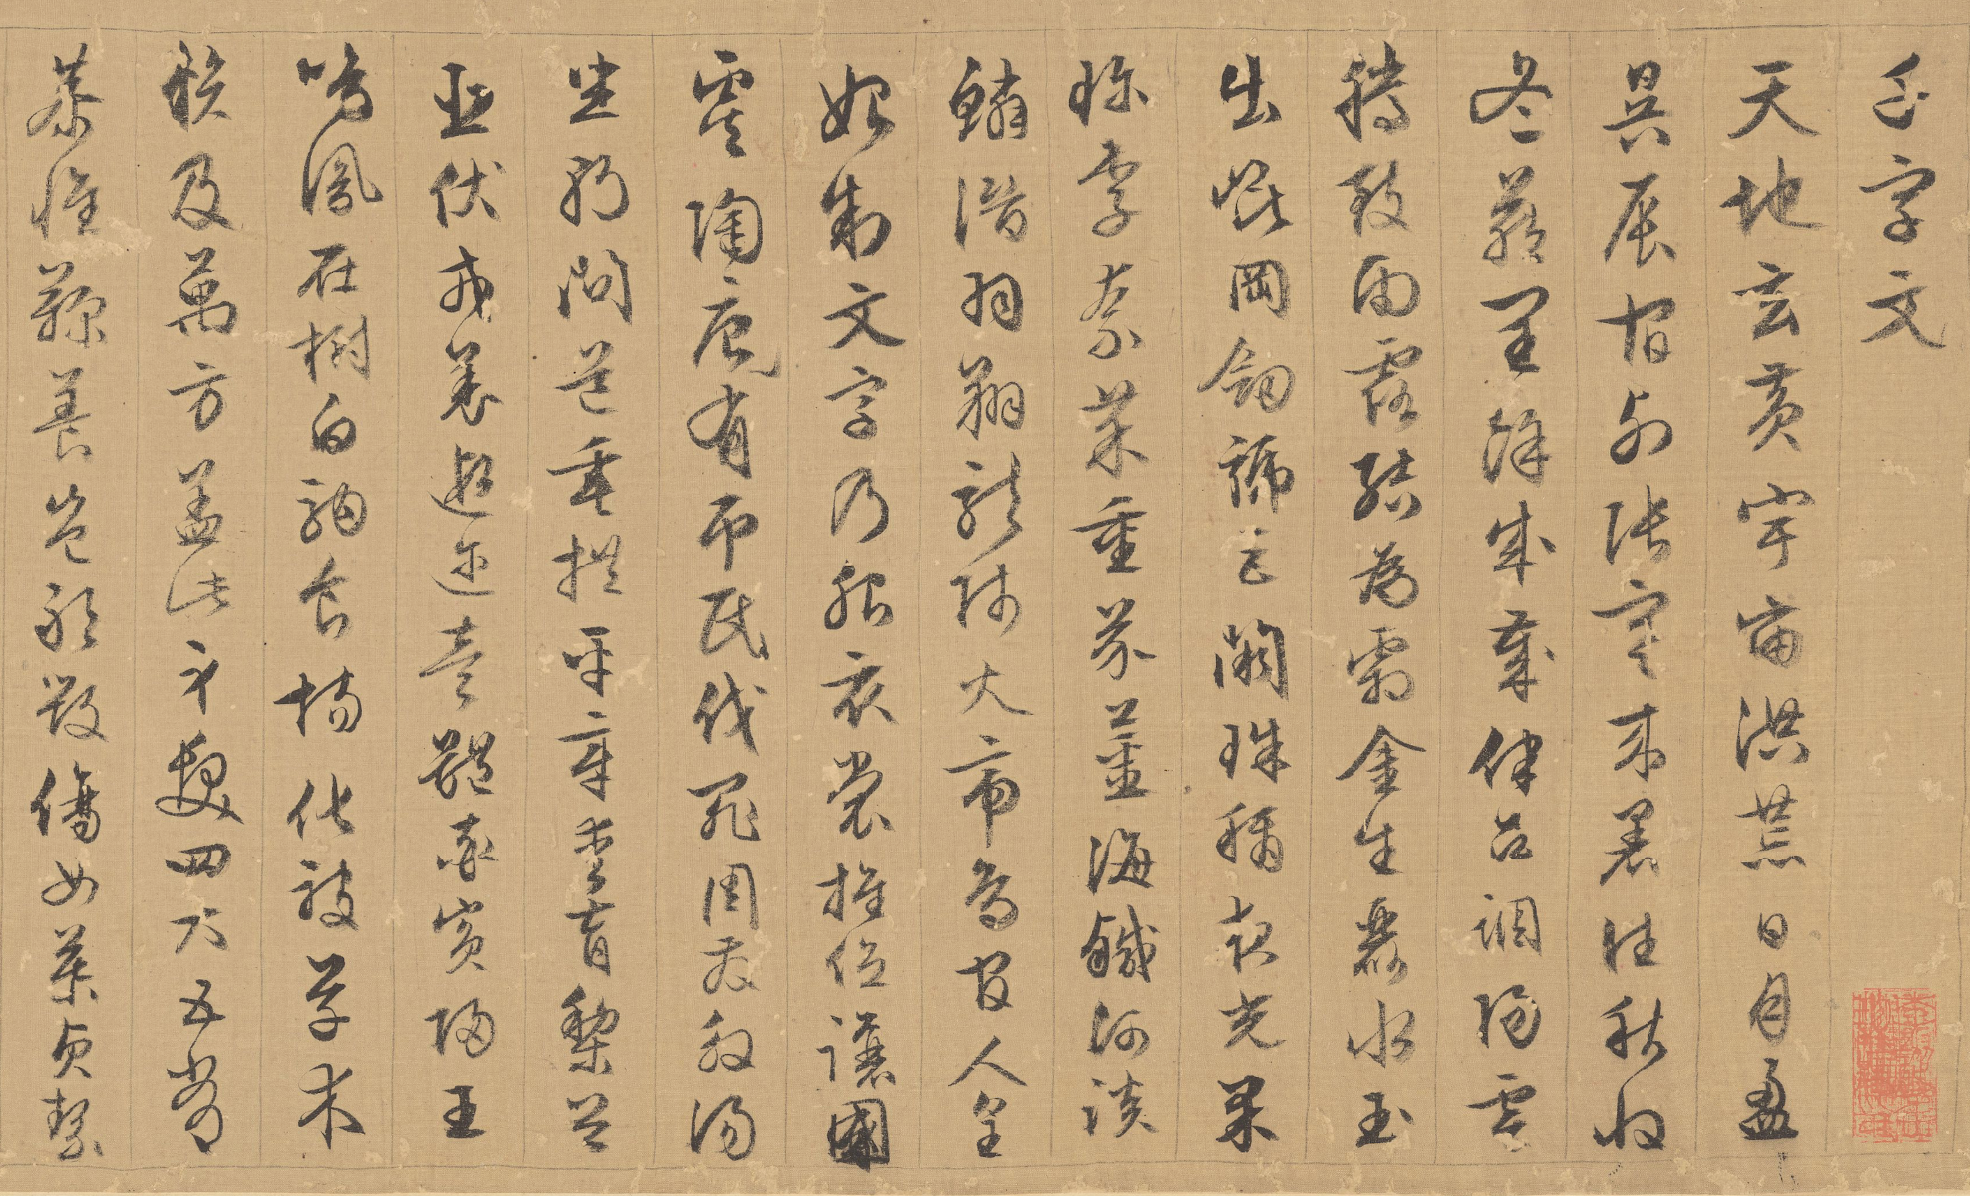 千字文
天地玄黃宇宙洪荒日月盈
昃辰宿列張寒來暑往秋收
冬藏閏餘成歲律呂調陽雲
騰致雨露結為霜金生麗水玉
出崑岡劍號巨闕珠稱夜光果
珍李柰菜重芥薑海鹹河淡
鱗潛羽翔龍師火帝鳥官人皇
始制文字乃服衣裳推位讓國
虞陶唐有弔民伐罪周發殷湯
坐朝問道垂拱平章愛育黎首
臣伏戎羌遐邇壹體率賓歸王
鳴鳳在樹白駒食場化被草木
賴及萬方蓋此身髮四大五常
恭惟鞠養豈敢毀傷女慕貞絜